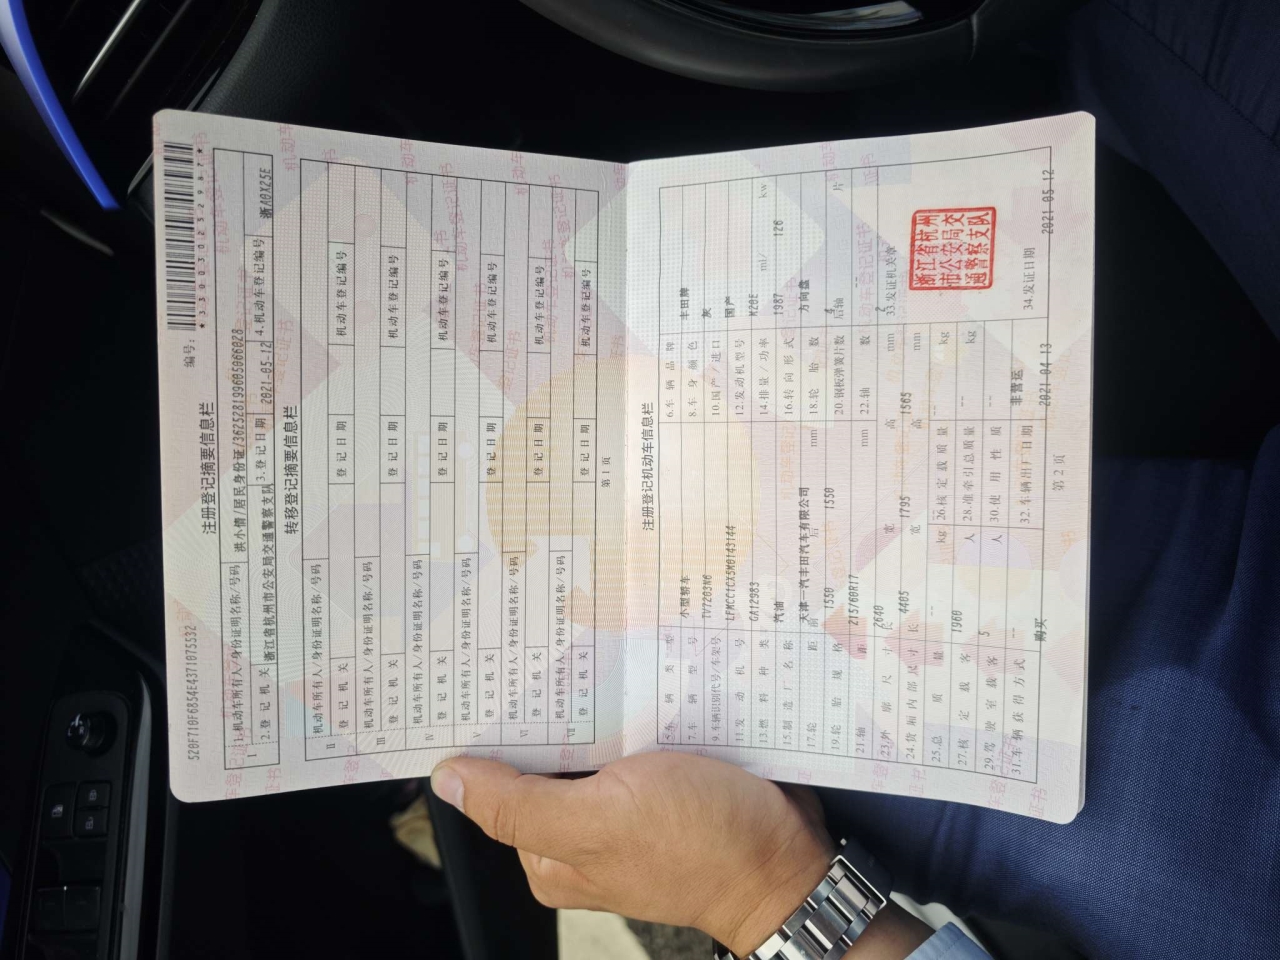 编号:
*330030252987*
注册登记摘要信息栏
I 1.机动车所有人/身份证明名称/号码 洪小倩/居民身份证/362528199605066028
2.登记机关 浙江省杭州市公安局交通警察支队 3.登记日期 2021-05-12 4.机动车登记编号 浙A0X25E
转移登记摘要信息栏
II 机动车所有人/身份证明名称/号码
登记机关 登记日期 机动车登记编号
III 机动车所有人/身份证明名称/号码
登记机关 登记日期 机动车登记编号
IV 机动车所有人/身份证明名称/号码
登记机关 登记日期 机动车登记编号
V 机动车所有人/身份证明名称/号码
登记机关 登记日期 机动车登记编号
VI 机动车所有人/身份证明名称/号码
登记机关 登记日期 机动车登记编号
VII 机动车所有人/身份证明名称/号码
登记机关 登记日期 机动车登记编号
第 1 页
注册登记机动车信息栏
5.车辆类型 小型轿车 6.车辆品牌 丰田牌
7.车辆型号 TV7203N6 8.车身颜色 灰
9.车辆识别代号/车架号 LFMCC1CX5M0143144 10.国产/进口 国产
11.发动机号 GA12983 12.发动机型号 M20E
13.燃料种类 汽油 14.排量/功率 1987 ml/ 126 kw
15.制造厂名称 天津一汽丰田汽车有限公司 16.转向形式 方向盘
17.轮距 前 1550 后 1550 mm 18.轮胎数 4
19.轮胎规格 215/60R17 20.钢板弹簧片数 后轴 -- 片
21.轴距 2640 mm 22.轴数 2
23.外廓尺寸 长 4405 宽 1795 高 1565 mm 33.发证机关章
24.货厢内部尺寸 长 宽 高 mm
浙江省杭州
市公安局交
通警察支队
25.总质量 -- kg 26.核定载质量 -- kg
27.核定载客 人 28.准牵引总质量 -- kg
29.驾驶室载客 人 30.使用性质 非营运 34.发证日期 2021-05-12
31.车辆获得方式 购买 32.车辆出厂日期 2021-04-13
第 2 页